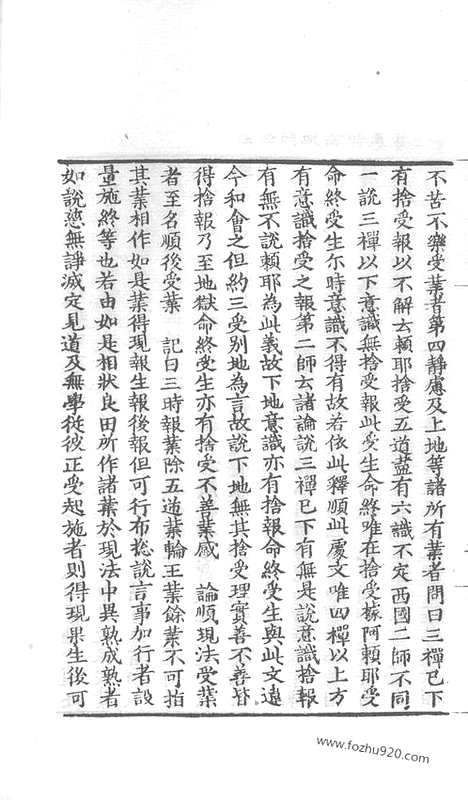 不苦不樂受業者第四靜慮及上地等諸所有業者問曰三禪已下
有捨受報以不解云頼耶捨受五道蓋有六識不定西國二師不同
一說三禪以下意識無捨受報此受生命終唯在捨受據阿頼耶受
命終受生尓時意識不得有故若依此釋順此處文唯四禪以上方
有意識捨受之報第二師云諸論說三禪已下有無是說意識捨報
有無不說頼耶為此義故下地意識亦有捨報命終受生與此文違
今和會之但約三受別地為言故說下地無其捨受理實善不善皆
得捨報乃至地獄命終受生亦有捨受不善業感　論順現法受業
者至名順後受業　記曰三時報業除五道業輪王業餘業不可指
其業相作如是業得現報生報後報但可行布捴說言事加行者設
量施終等也若由如是相狀良田所作諸業於現法中異熟成熟者
如說慈無諍滅定見道及無學從彼正受起施者則得現果生後可
www.fozhu920.com